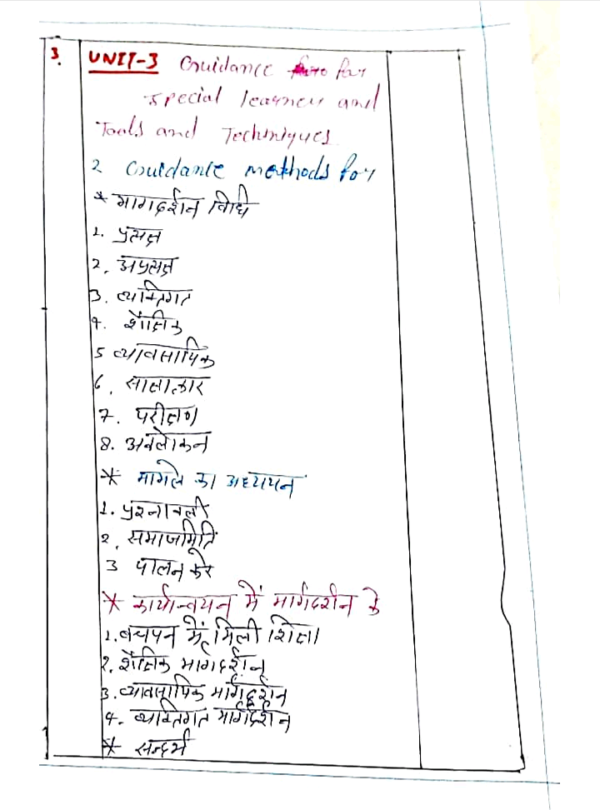 3. UNIT-3 Guidance for
special learner and
Tools and Techniques
2 Guidance methods for
* मार्गदर्शन विधि
1. प्रत्यक्ष
2. अप्रत्यक्ष
3. व्यक्तिगत
4. शैक्षिक
5 व्यावसायिक
6. साक्षात्कार
7. परीक्षण
8. अवलोकन
* मामले का अध्ययन
1. प्रश्नावली
2. समाजमिति
3 पालन करे
* कार्यान्वयन में मार्गदर्शन के
1. बचपन में मिली शिक्षा
2. शैक्षिक मार्गदर्शन
3. व्यावसायिक मार्गदर्शन
4. व्यक्तिगत मार्गदर्शन
* सन्दर्भ